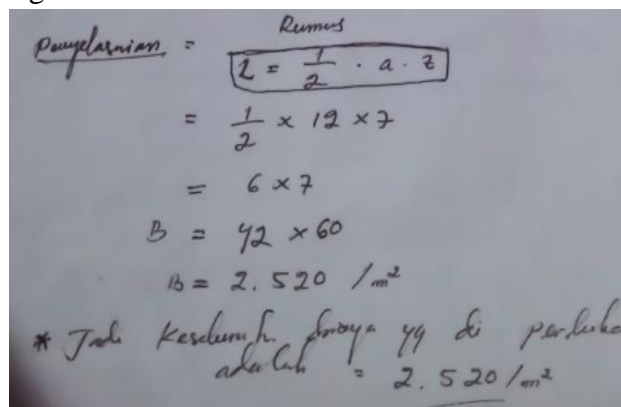 Penyelesaian = Rumus
L = 1/2 . a . t
= 1/2 x 12 x 7
= 6 x 7
B = 42 x 60
B = 2.520 /m²
* Jadi keseluruh biaya yg di perluka
adalah = 2.520/m²